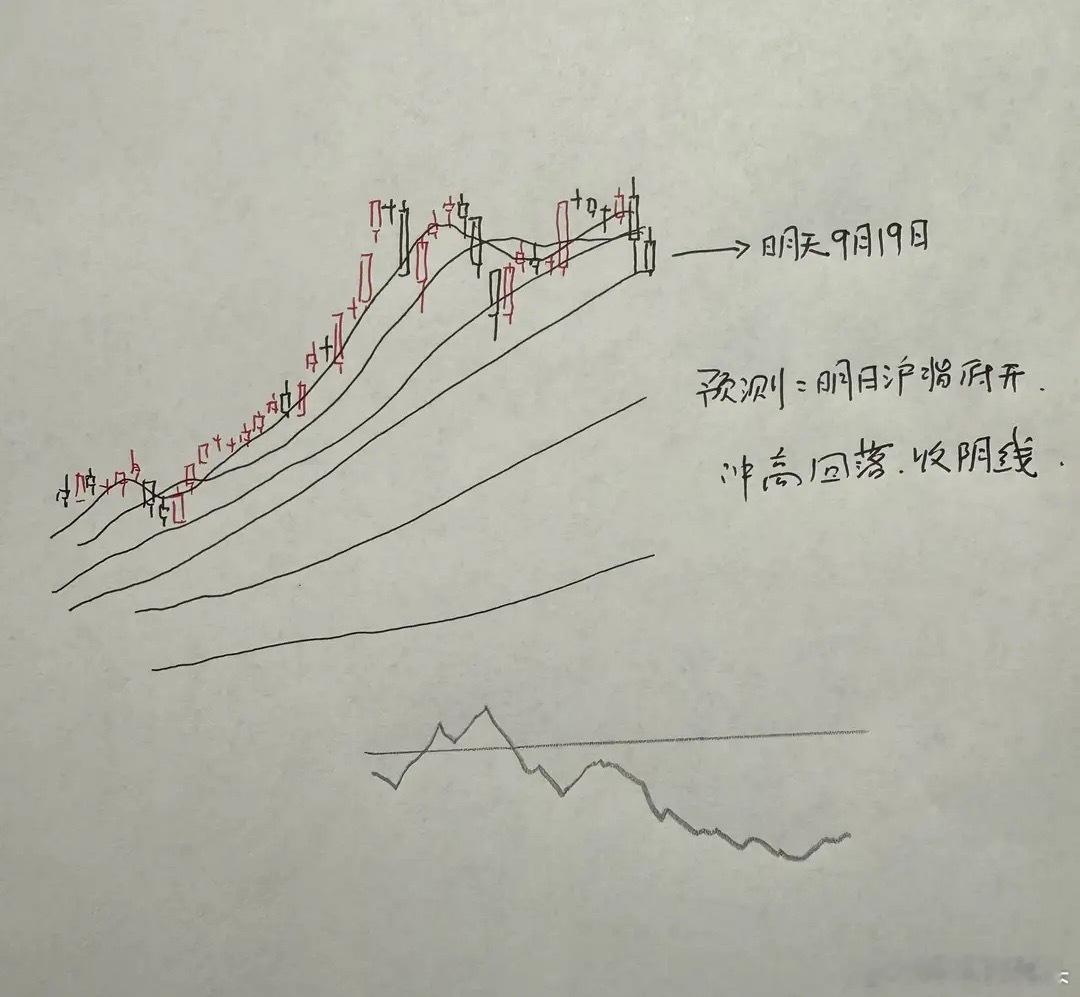 明天9月19日
预测：明日沪指低开.
冲高回落.收阴线.